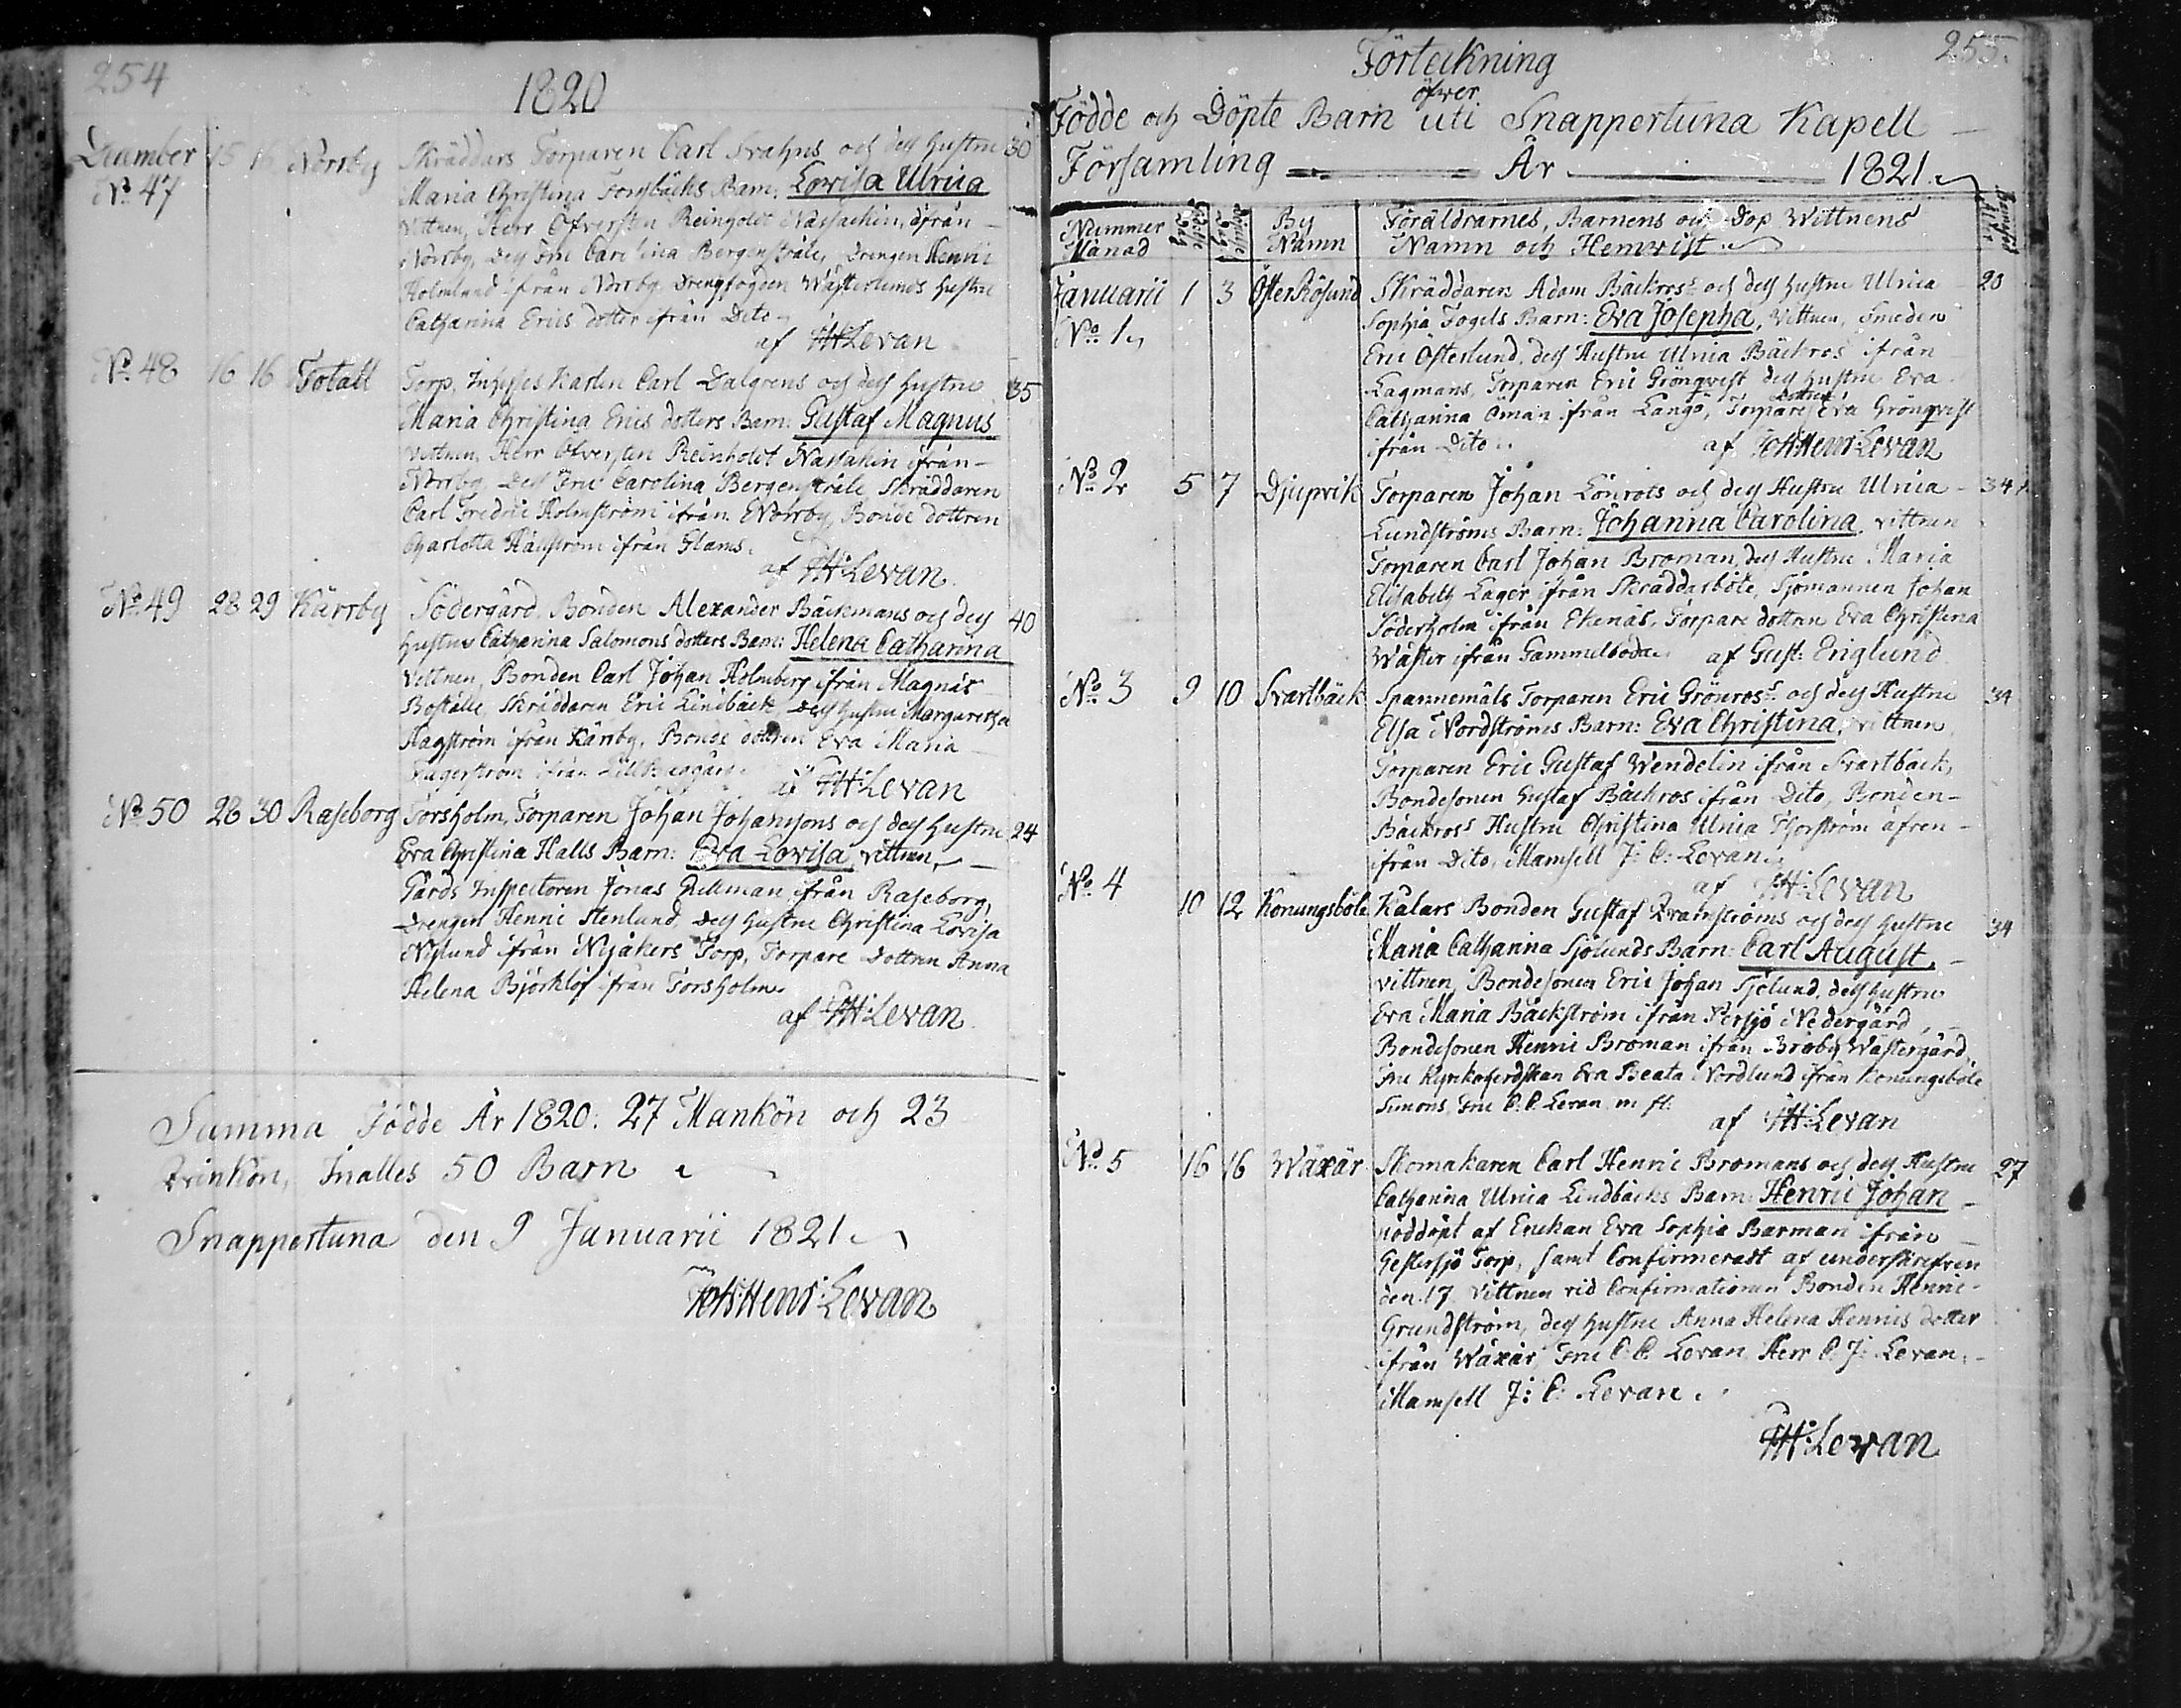 254
1820
December 15 16 Norrby Skräddars Torparen Carl Svahns och dess hustru 30
No 47 Maria Christina Forssbäcks Barn: Lovisa Ulrica
Vittnen, Herr Öfversten Reinholdt Nassachin, ifrån
Norrby, dess Fru Carolina Bergenstråle, Drengen Henric
Holmlund ifrån Norrby Drengfogden Wästerlunds hustru
Catharina Erics dotter ifrån Dito
af JH: Levan
No 48 16 16 Totall Torp, Karlen Carl Dalgrens och dess hustru 35
Maria Christina Erics dotters Barn: Gustaf Magnus
Vittnen, Herr Öfversten Reinholdt Nassakin ifrån
Norrby, Dess Fru Carolina Bergenstråle, Skräddaren
Carl Fredric Holmström ifrån Norrby, Bonde dottren
Charlotta Hägström ifrån Glams.
af JH: Levan
No 49 28 29 Kärrby Södergård Bonden Alexander Bäckmans och dess 40
hustru Catharina Salomons dotters Barn: Helena Catharina
Vittnen, Bonden Carl Johan Holmberg ifrån Magnäs
Boställe, Skräddaren Eric Lindbäck dess hustru Margaretha
Hagström ifrån Kärrby, Bonde dottren Eva Maria
ifrån
af JH: Levan
No 50 28 30 Raseborg Torsholm, Torparen Johan Johanssons och dess hustru 24
Eva Christina Halls Barn: Eva Lovisa, vittnen,
Gårds Inspectoren Jonas Ekman ifrån Raseborg,
Drengen Henric Stenlund, dess hustru Christina Lovisa
Nylund ifrån Nyåkers Torp, Torpare Dottren Anna
Helena Björklöf ifrån Torsholm
af JH: Levan
Summa Födde År 1820: 27 Mankön och 23
Qvinkön, Inalles 50 Barn
Snappertuna den 9 Januarii 1821
Joh: Henr: Levan
255.
Förteckning
öfver
Födde och Döpte Barn uti Snappertuna Kapell
Församling År 1821
Nummer Månad By Namn Föräldrarnes, Barnens och Dop Wittnens
Namn och Hemvist
Januarii 1 3 Öster Rösund Skräddaren Adam Bäckros och dess hustru Ulrica 20
No 1 Sophia Fogels Barn: Eva Josepha, Vittnen, Smeden
Eric Österlund, dess Hustru Ulrica Bäckros ifrån
Lagmans, Torparen Eric Grönqvist dess hustru Eva
Catharina Öman ifrån Langö, Torpare Dottren Eva Grönqvist
ifrån Dito af Joh: Henr: Levan
No 2 5 7 Djupvik Torparen Johan Lönrots och dess Hustru Ulrica 34
Lundströms Barn: Johanna Carolina. vittnen
Torparen Carl Johan Broman, dess Hustru Maria
Elisabeth Lager ifrån Skräddarböle, Sjömannen Johan
Söderholm ifrån Ekenäs, Torpare dottren Eva Christina
Wäster ifrån Gammelboda af Gust: Englund
No 3 9 10 Svartbäck Spannemåls Torparen Eric Grönros och dess Hustru 34
Elsa Nordströms Barn: Eva Christina, vittnen
Torparen Eric Gustaf Wendelin ifrån Svartbäck,
Bondesonen Gustaf Bäckros ifrån Dito, Bonden
Bäckross Hustru Christina Ulrica Thorström äfven
ifrån Dito, Mamsell J: C: Levan
af JH: Levan
No 4 10 12 Konungsböle Kälars Bonden Gustaf Qvarnströms och dess hustru 34
Maria Catharina Sjölunds Barn: Carl August,
vittnen, Bondesonen Eric Johan Sjölund, dess hustru
Eva Maria Bäckström ifrån Persjö Nedergård,
Bondesonen Henric Broman ifrån Broby Wästergård,
Fru Kyrkoherdskan Eva Beata Nordlund ifrån Konungsböle
Simons, Fru C. C. Levan m. fl.
af JH: Levan
No 5 16 16 Wäxär Skomakaren Carl Henric Bromans och dess Hustru 27
Catharina Ulrica Lindbäcks Barn: Henric Johan
nöddöpt af Enckan Eva Sophia Barman ifrån
Torp, samt Confirmeradt af underskrefven
den 17 Vittnen vid Confirmationen Bonden Henric
Grundström, dess hustru Anna Helena Henrics dotter
ifrån Wäxär, Fru C. C. Levan, Herr C. J: Levan,
Mamsell J: C: Levan.
JH: Levan